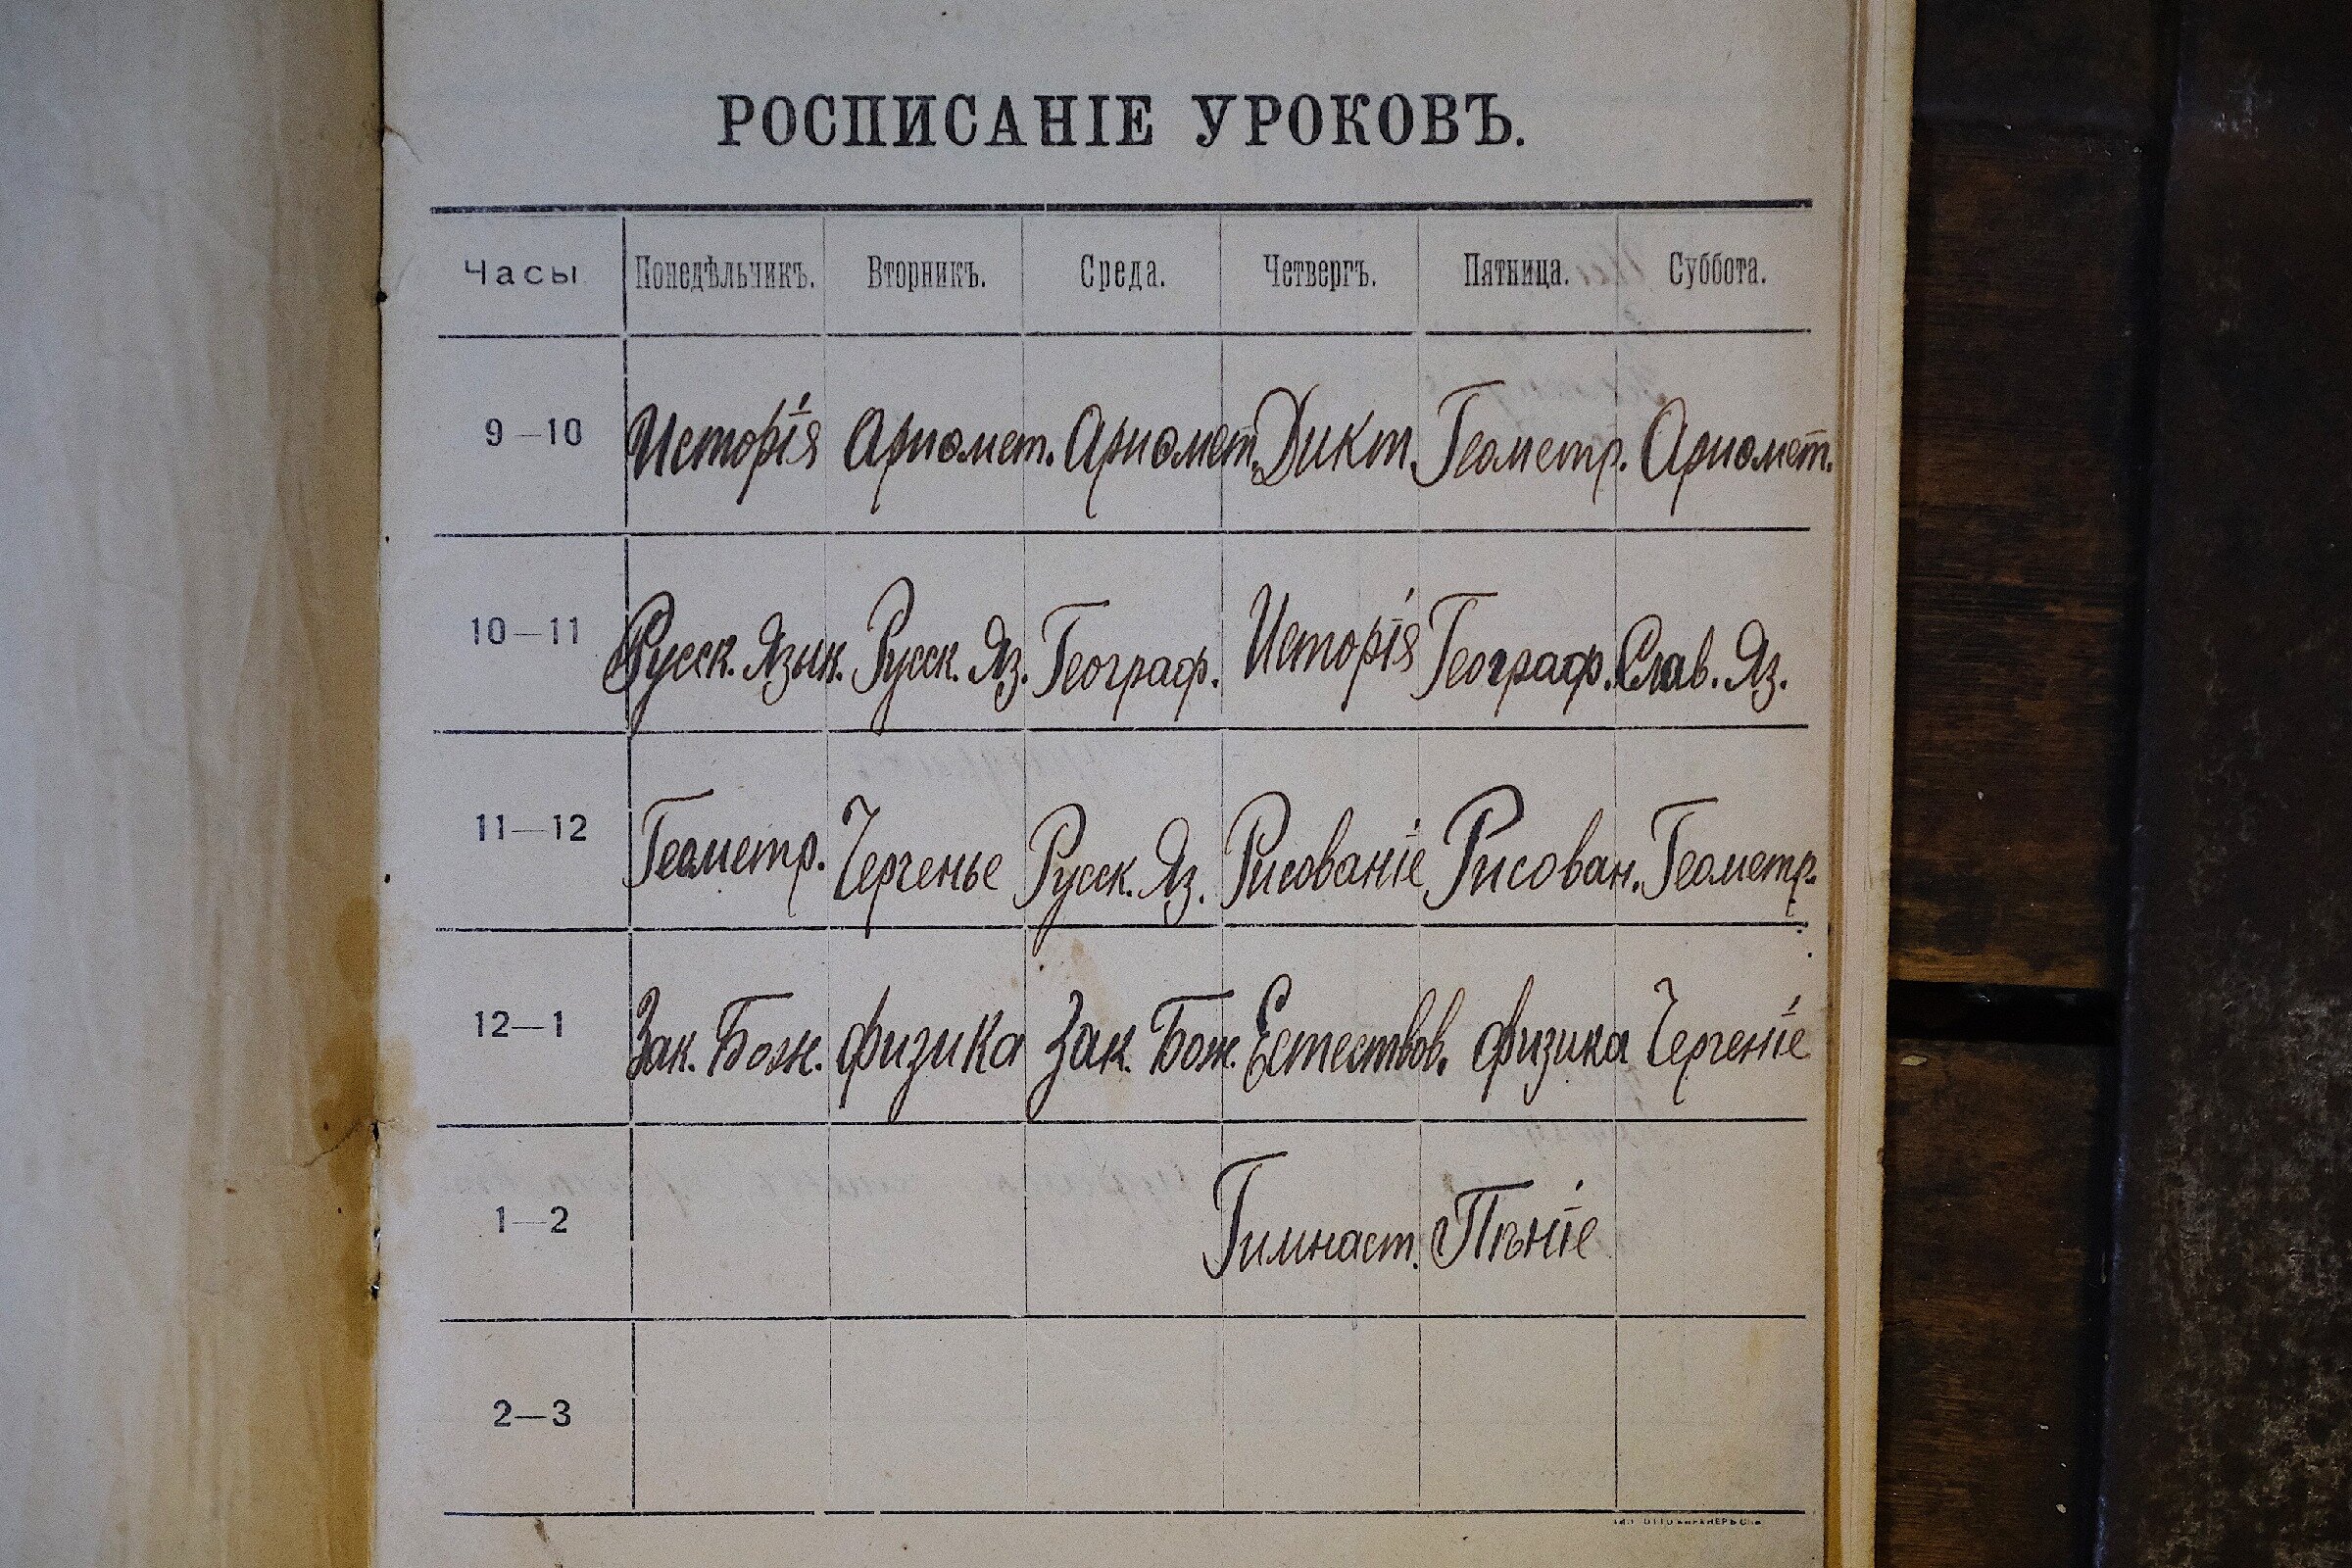 РОСПИСАНІЕ УРОКОВЪ.
Часы Понедѣльникъ. Вторникъ. Среда. Четвергъ. Пятница. Суббота.
9—10 Исторія Ариѳмет. Ариѳмет. Дикт. Геометр. Ариѳмет.
10—11 Русск. Язык. Русск. Яз. Географ. Исторія Географ. Слав. Яз.
11—12 Геометр. Черченье Русск. Яз. Рисованіе Рисован. Геометр.
12—1 Зак. Бож. физика Зак. Бож. Естествов. физика Черченіе
1—2 Гимнаст. Пѣніе
2—3